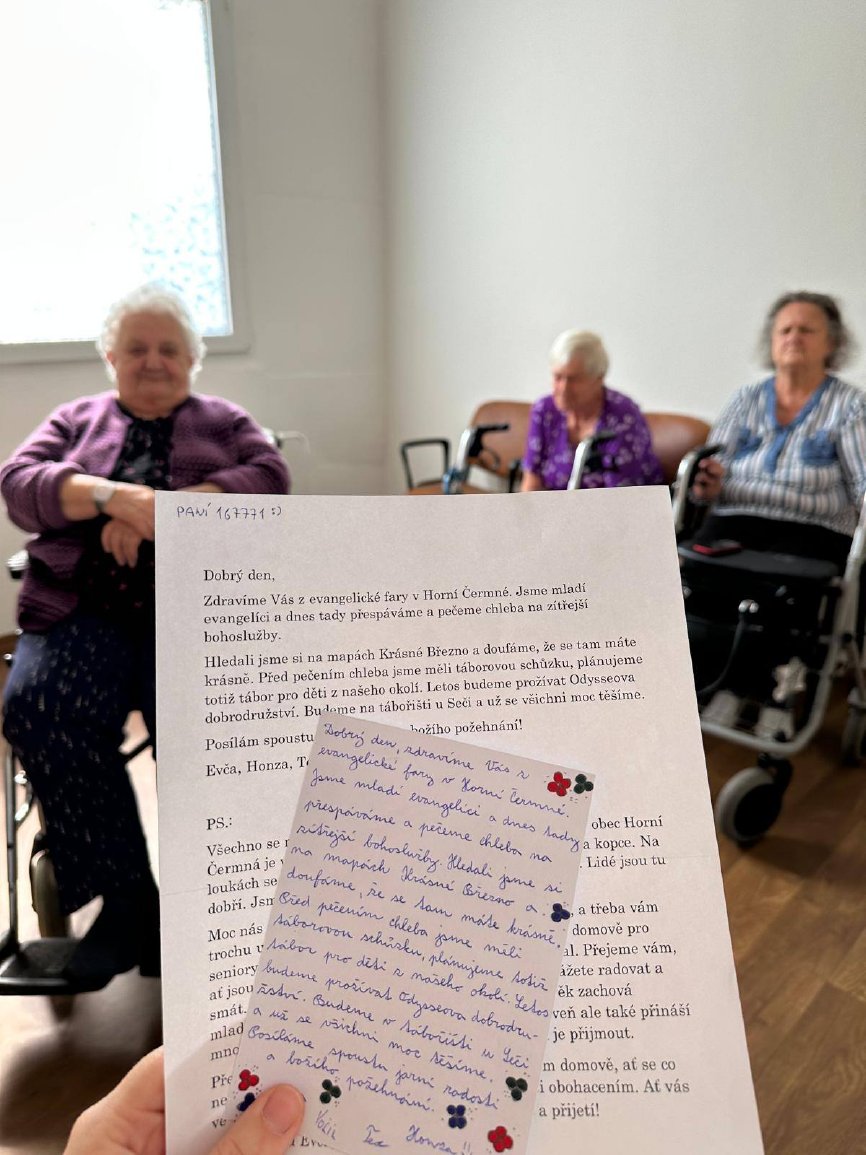 PANÍ 167771 :)
Dobrý den,
Zdravíme Vás z evangelické fary v Horní Čermné. Jsme mladí
evangelíci a dnes tady přespáváme a pečeme chleba na zítřejší
bohoslužby.
Hledali jsme si na mapách Krásné Březno a doufáme, že se tam máte
krásně. Před pečením chleba jsme měli táborovou schůzku, plánujeme
totiž tábor pro děti z našeho okolí. Letos budeme prožívat Odysseova
dobrodružství. Budeme na tábořišti u Seči a už se všichni moc těšíme.
Posílám spoustu božího požehnání!
Evča, Honza,
PS.: obec Horní
Všechno se a kopce. Na
Čermná je Lidé jsou tu
loukách se
dobří. a třeba vám
Moc nás domově pro
trochu Přejeme vám,
seniory radovat a
ať jsou zachová
smát. ale také přináší
je přijmout.
m domově, ať se co
i obohacením. Ať vás
a přijetí!
Dobrý den, zdravíme Vás z
evangelické fary v Horní Čermné.
Jsme mladí evangelíci a dnes tady
přespáváme a pečeme chleba na
zítřejší bohoslužby. Hledali jsme si
na mapách Krásné Březno a
doufáme, že se tam máte krásně.
Před pečením chleba jsme měli
táborovou schůzku, plánujeme totiž
tábor pro děti z našeho okolí. Letos
budeme prožívat Odysseova dobrodru-
žství. Budeme v tábořišti u Seči
a už se všichni moc těšíme.
Posíláme spoustu jarní radosti
a božího požehnání.
Tex Honza